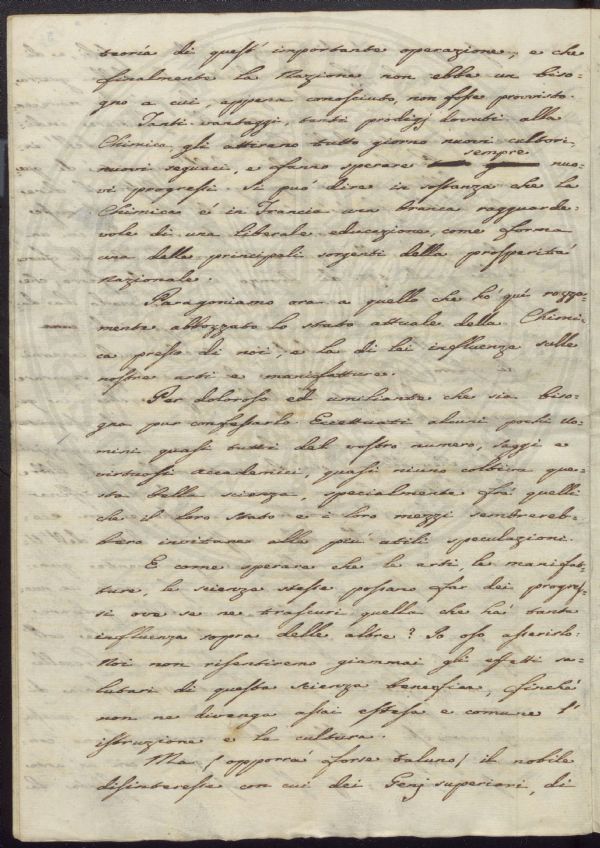 teoria di quest' importante operazione, e che
finalmente la Nazione non ebbe un biso=
gno a cui, appena conosciuto, non fosse provvisto.
Tanti vantaggi, tanti prodigj dovuti alla
Chimica, gli attirano tutto giorno nuovi cultori,
nuovi seguaci, e fanno sperare sempre nuo=
vi progressi. Si può dire in sostanza che la
Chimica é in Francia una branca ragguarde=
vole di una liberale educazione, come forma
una delle principali sorgenti della prosperitá
Nazionale.
Paragoniamo ora a quello che hó quí rozza=
mente abbozzato lo stato attuale della Chimi=
ca presso di noi, e la di lei influenza sulle
nostre arti e manifatture.
Per doloroso ed umiliante che sia biso=
gna pur confessarlo. Eccettuati alcuni pochi Uo=
mini quasi tutti del vostro numero, saggi e
virtuosi Accademici, quasi niuno coltiva que=
sta bella scienza, specialmente frá quelli
che il loro stato e i loro mezzi sembrereb=
bero invitare alle piú utili speculazioni.
E come sperare che le arti, le manifat=
ture, le scienze stesse possano far dei progres=
si ove se ne trascuri quella che há tanta
influenza sopra delle altre? Io oso asserirlo:
Noi non risentiremo giammai gli effetti sa=
lutari di questa scienza benefica, finché
non ne divenga assai estesa e comune l'
istruzione e la cultura.
Ma (opporrá forse taluno) il nobile
disinteresse con cui dei Genj superiori, di